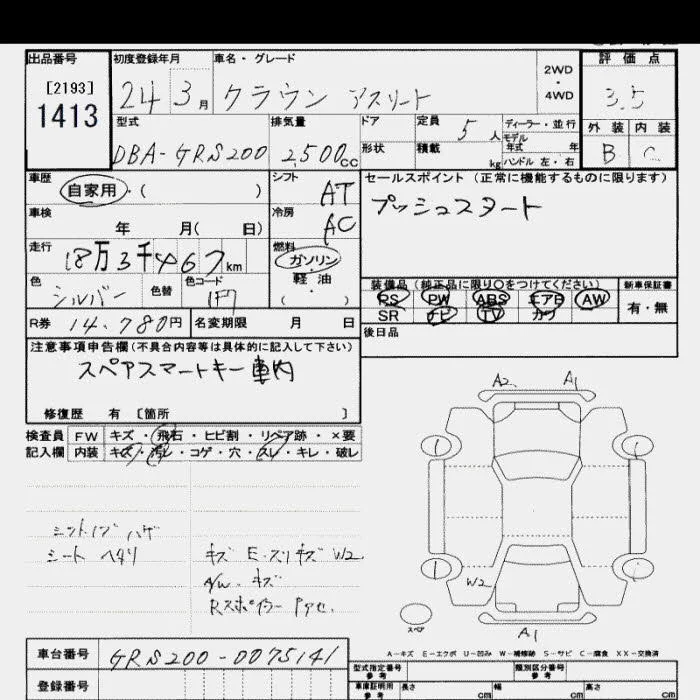 出品番号 初度登録年月 車名・グレード 2WD・4WD 評価点
[2193]
1413
24 3月 クラウン アスリート 3.5
型式 排気量 ドア 定員 5人 ディーラー・並行 外装 内装
形状 積載 kg モデル年式 年
ハンドル 左・右
DBA-GRS200 2,500cc B C
車歴 自家用・( ) シフト AT セールスポイント(正常に機能するものに限ります)
プッシュスタート
車検 年 月( 日) 冷房 AC
走行 18万3千467km 燃料 ガソリン・軽油・( )
色 シルバー 色替 色コード 1F7
装備品(純正品に限り○をつけてください) 新車保証書
PS PW ABS エアB AW 有・無
SR ナビ TV カワ
R券 14,780円 名変期限 月 日 後日品
注意事項申告欄(不具合内容等は具体的に記入して下さい)
スペアスマートキー車内
修復歴 有 [箇所 ]
検査員 FW キズ・飛石・ヒビ割・リペア跡・×要
記入欄 内装 キズ・汚レ・コゲ・穴・スレ・キレ・破レ
A2 A1
シート ヘタリ
キズ E.スリキズ W2
A/W キズ
W2
スペア
A1
A-キズ E-エクボ U-凹み W-補修跡 S-サビ C-腐食 XX-交換済
車台番号 GRS200-0075141
登録番号
型式指定番号 参考 類別区分番号 参考
車庫証明用 参考 長さ cm 幅 cm 高さ cm